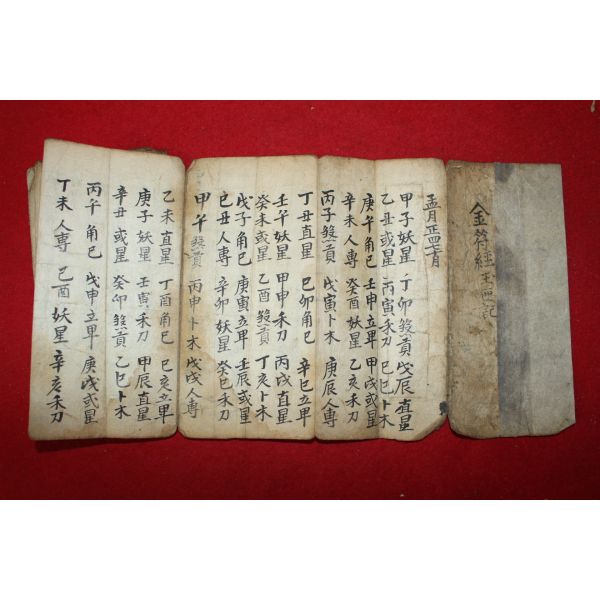 金符經玉匣記
孟月正四七月
甲子妖星 丁卯發貢 戊辰直星
乙丑或星 丙寅禾刀 己巳卜木
庚午角巳 壬申立早 甲戌或星
辛未人專 癸酉妖星 乙亥禾刀
丙子發貢 戊寅卜木 庚辰人專
丁丑直星 己卯角巳 辛巳立早
壬午妖星 甲申禾刀 丙戌直星
癸未或星 乙酉發貢 丁亥卜木
戊子角巳 庚寅立早 壬辰或星
己丑人專 辛卯妖星 癸巳禾刀
甲午發貢 丙申卜木 戊戌人專
乙未直星 丁酉角巳 己亥立早
庚子妖星 壬寅禾刀 甲辰直星
辛丑或星 癸卯發貢 乙巳卜木
丙午角巳 戊申立早 庚戌或星
丁未人專 己酉妖星 辛亥禾刀